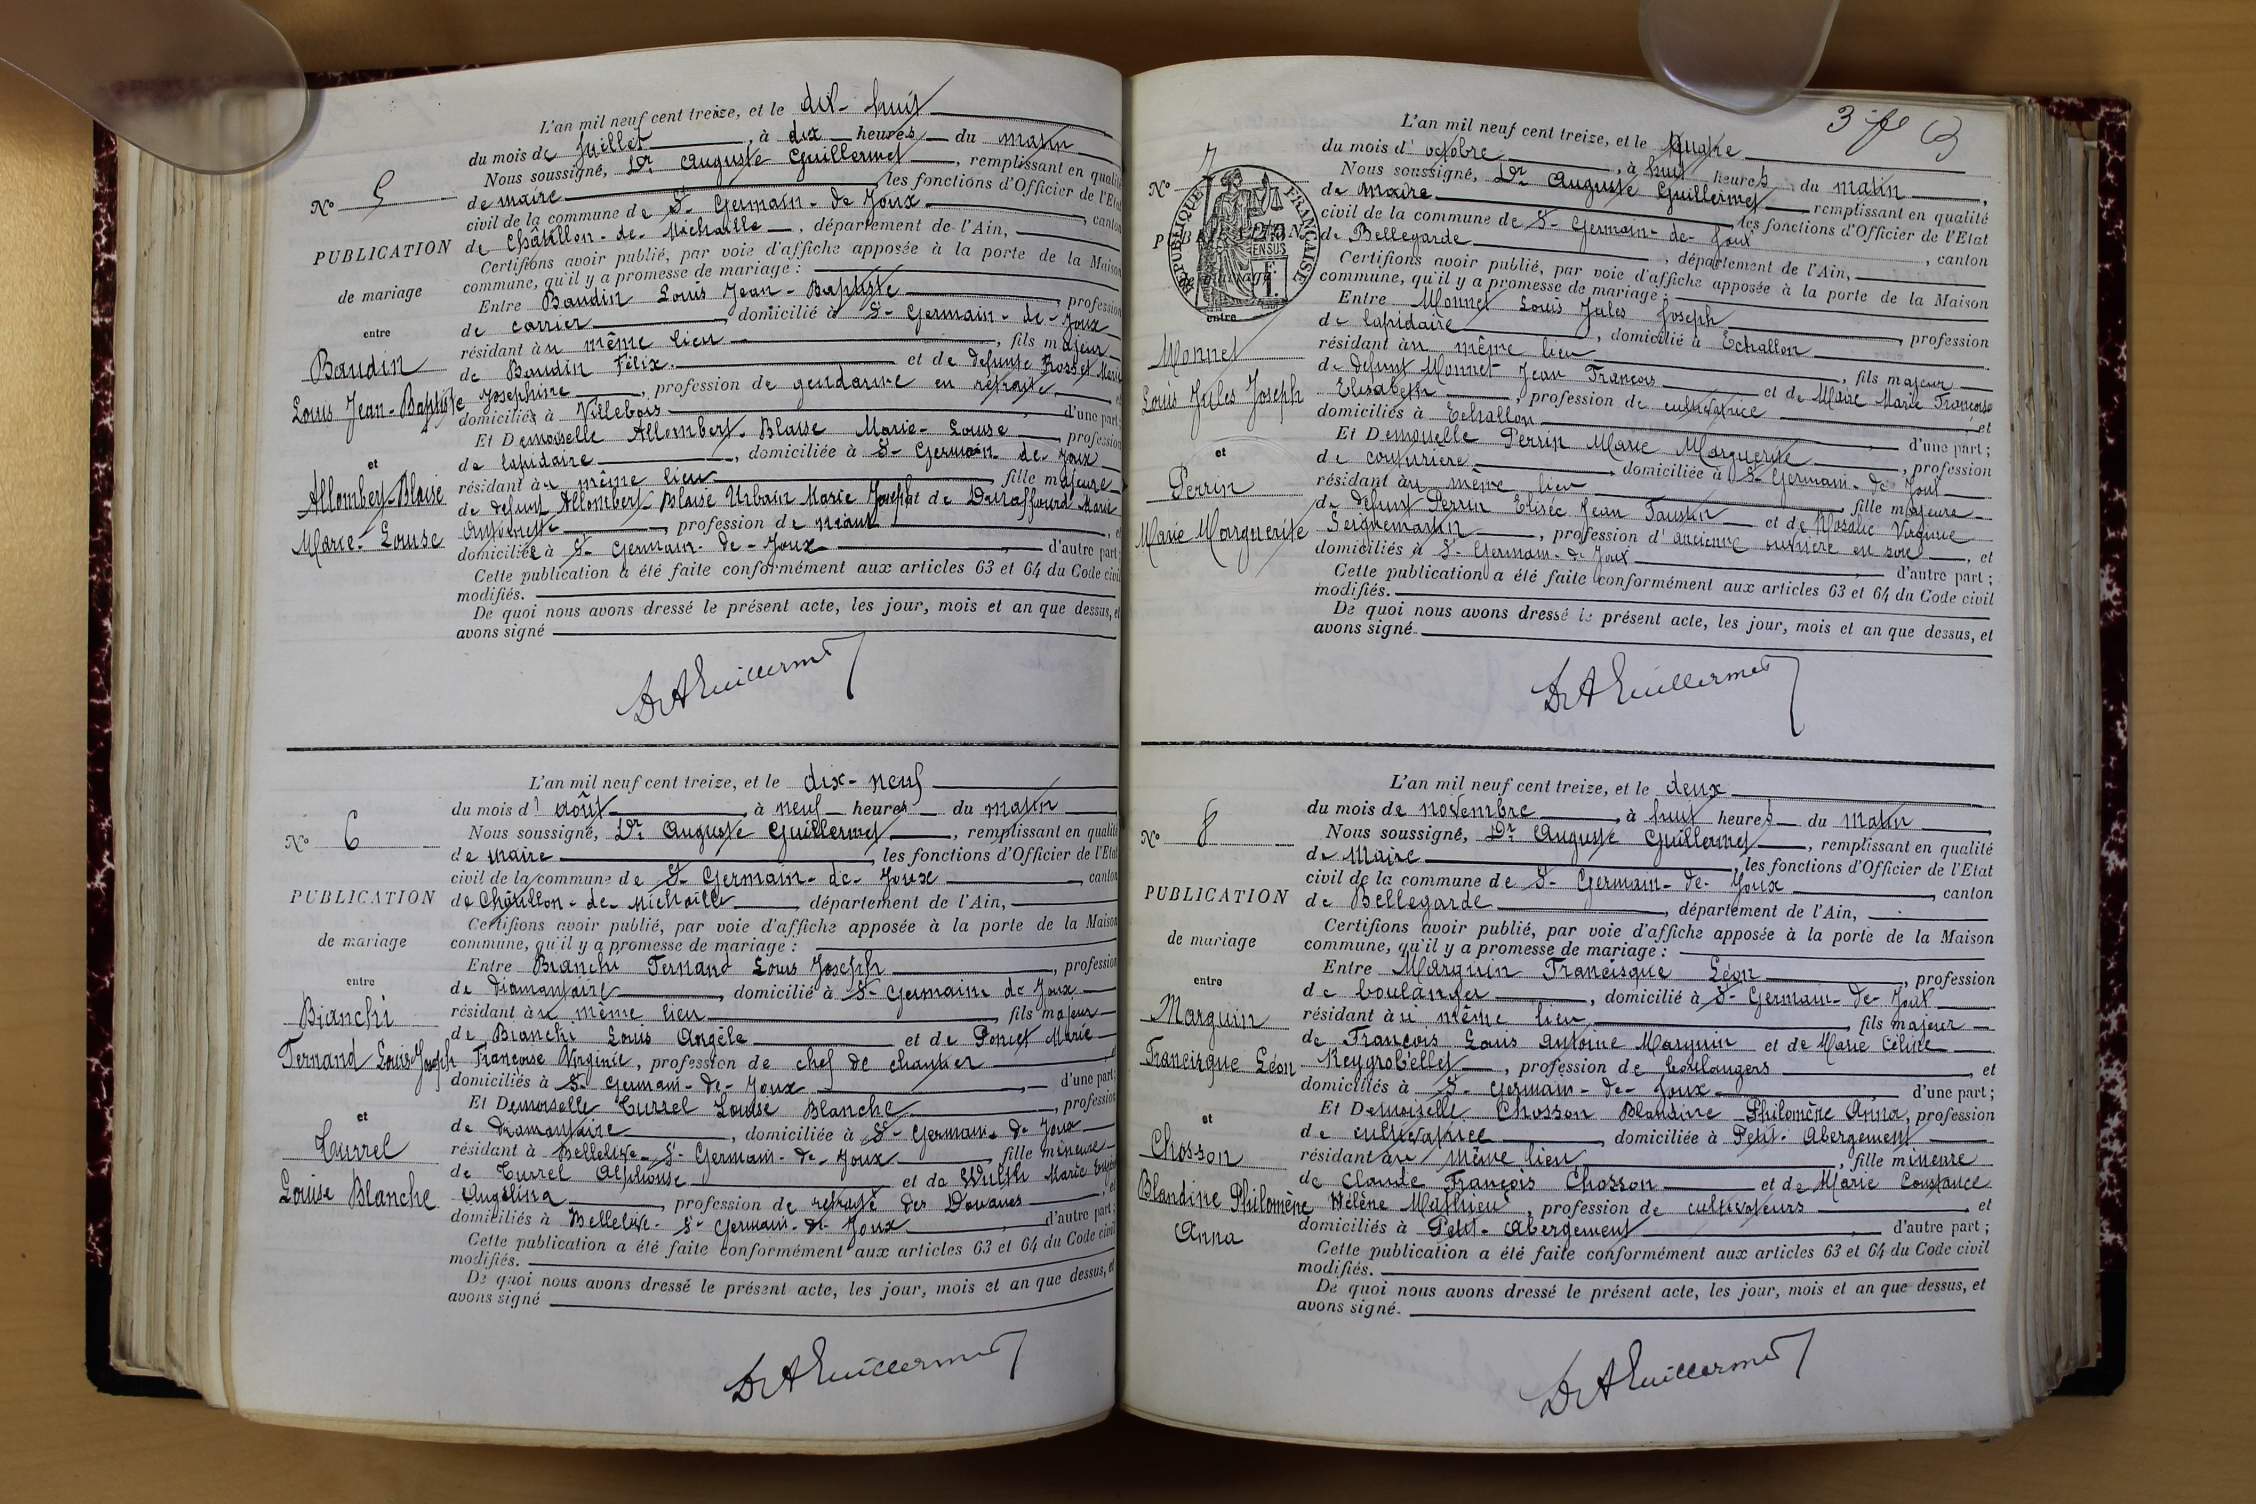 L'an mil neuf cent treize, et le dix-huit
du mois de Juillet, à dix heures du matin
Nous soussigné, Dr. Auguste Guillermet, remplissant en qualité
de maire, les fonctions d'Officier de l'Etat
civil de la commune de St-Germain-de-Joux, canton
de Châtillon-de-Michaille, département de l'Ain,
Certifions avoir publié, par voie d'affiche apposée à la porte de la Maison
commune, qu'il y a promesse de mariage :
Entre Baudin Louis Jean-Baptiste, profession
de carrier, domicilié à St-Germain-de-Joux
résidant au même lieu, fils majeur
de Baudin Félix et de defunte Rosset Marie
Josephine, profession de gendarme en retraite, et
domiciliés à Villebois d'une part;
Et Demoiselle Allombert-Blaise Marie-Louise, profession
de lapidaire, domiciliée à St-Germain-de-Joux
résidant au même lieu fille majeure
de defunt Allombert-Blaise Urbain Marie Joseph et de Marie
profession de néant, et
domiciliée à St-Germain-de-Joux d'autre part;
Cette publication a été faite conformément aux articles 63 et 64 du Code civil
modifiés.
De quoi nous avons dressé le présent acte, les jour, mois et an que dessus, et
avons signé
Dr A Guillermet
No 5
PUBLICATION
de mariage
entre
Baudin
Louis Jean-Baptiste
et
Allombert-Blaise
Marie-Louise
L'an mil neuf cent treize, et le dix-neuf
du mois d'août, à neuf heures du matin
Nous soussigné, Dr. Auguste Guillermet, remplissant en qualité
de maire, les fonctions d'Officier de l'Etat
civil de la commune de St-Germain-de-Joux, canton
de Châtillon-de-Michaille, département de l'Ain,
Certifions avoir publié, par voie d'affiche apposée à la porte de la Maison
commune, qu'il y a promesse de mariage :
Entre Bianchi Fernand Louis Joseph, profession
de diamantaire, domicilié à St-Germain de Joux
résidant au même lieu, fils majeur
de Bianchi Louis Angèle et de Poncet Marie
Françoise Virginie, profession de chef de chantier, et
domiciliés à St-Germain-de-Joux, d'une part;
Et Demoiselle Currel Louise Blanche, profession
de diamantaire, domiciliée à St-Germain-de Joux
résidant à Bellerive-St-Germain-de-Joux, fille mineure
de Currel Alphonse et de Marie
Angelina, profession de retraité des Douanes, et
domiciliés à Bellerive-St-Germain-de-Joux, d'autre part;
Cette publication a été faite conformément aux articles 63 et 64 du Code civil
modifiés.
De quoi nous avons dressé le présent acte, les jour, mois et an que dessus, et
avons signé
Dr A Guillermet
No 6
PUBLICATION
de mariage
entre
Bianchi
Fernand Louis-Joseph
et
Currel
Louise Blanche
3 fe
L'an mil neuf cent treize, et le quatre
du mois d'octobre, à huit heures du matin,
Nous soussigné, Dr. Auguste Guillermet remplissant en qualité
de maire les fonctions d'Officier de l'Etat
civil de la commune de St-Germain-de-Joux, canton
de Bellegarde, département de l'Ain,
Certifions avoir publié, par voie d'affiche apposée à la porte de la Maison
commune, qu'il y a promesse de mariage :
Entre Monnet Louis Jules Joseph, profession
de lapidaire, domicilié à Echallon
résidant au même lieu, fils majeur
de defunt Monnet Jean François et de Maire Marie Françoise
Elisabeth, profession de cultivatrice et
domiciliés à Echallon d'une part;
Et Demoiselle Perrin Marie Marguerite, profession
de couturière, domiciliée à St-Germain-de Joux
résidant au même lieu, fille majeure
de defunt Perrin Elisée Jean Faustin et de Rosalie Virginie
Seignemartin, profession d'ancienne ouvrière en soie, et
domiciliés à St-Germain-de Joux, d'autre part;
Cette publication a été faite conformément aux articles 63 et 64 du Code civil
modifiés.
De quoi nous avons dressé le présent acte, les jour, mois et an que dessus, et
avons signé.
Dr A Guillermet
No 7
RÉPUBLIQUE FRANÇAISE
entre
Monnet
Louis Jules Joseph
et
Perrin
Marie Marguerite
L'an mil neuf cent treize, et le deux
du mois de novembre, à huit heures du matin,
Nous soussigné, Dr. Auguste Guillermet, remplissant en qualité
de Maire, les fonctions d'Officier de l'Etat
civil de la commune de St-Germain-de-Joux, canton
de Bellegarde, département de l'Ain,
Certifions avoir publié, par voie d'affiche apposée à la porte de la Maison
commune, qu'il y a promesse de mariage :
Entre Marguin Francisque Léon, profession
de boulanger, domicilié à St-Germain-de-Joux
résidant au même lieu, fils majeur
de François Louis Antoine Marguin et de Marie Céline
Reygrobellet, profession de boulangers, et
domiciliés à St-Germain-de-Joux d'une part;
Et Demoiselle Chosson Blandine Philomène Anna, profession
de cultivatrice, domiciliée à Petit-Abergement
résidant au même lieu, fille mineure
de Claude François Chosson et de Marie Constance
Hélène Mathieu, profession de cultivateurs, et
domiciliés à Petit-Abergement, d'autre part;
Cette publication a été faite conformément aux articles 63 et 64 du Code civil
modifiés.
De quoi nous avons dressé le présent acte, les jour, mois et an que dessus, et
avons signé.
Dr A Guillermet
No 8
PUBLICATION
de mariage
entre
Marguin
Francisque Léon
et
Chosson
Blandine Philomène
Anna